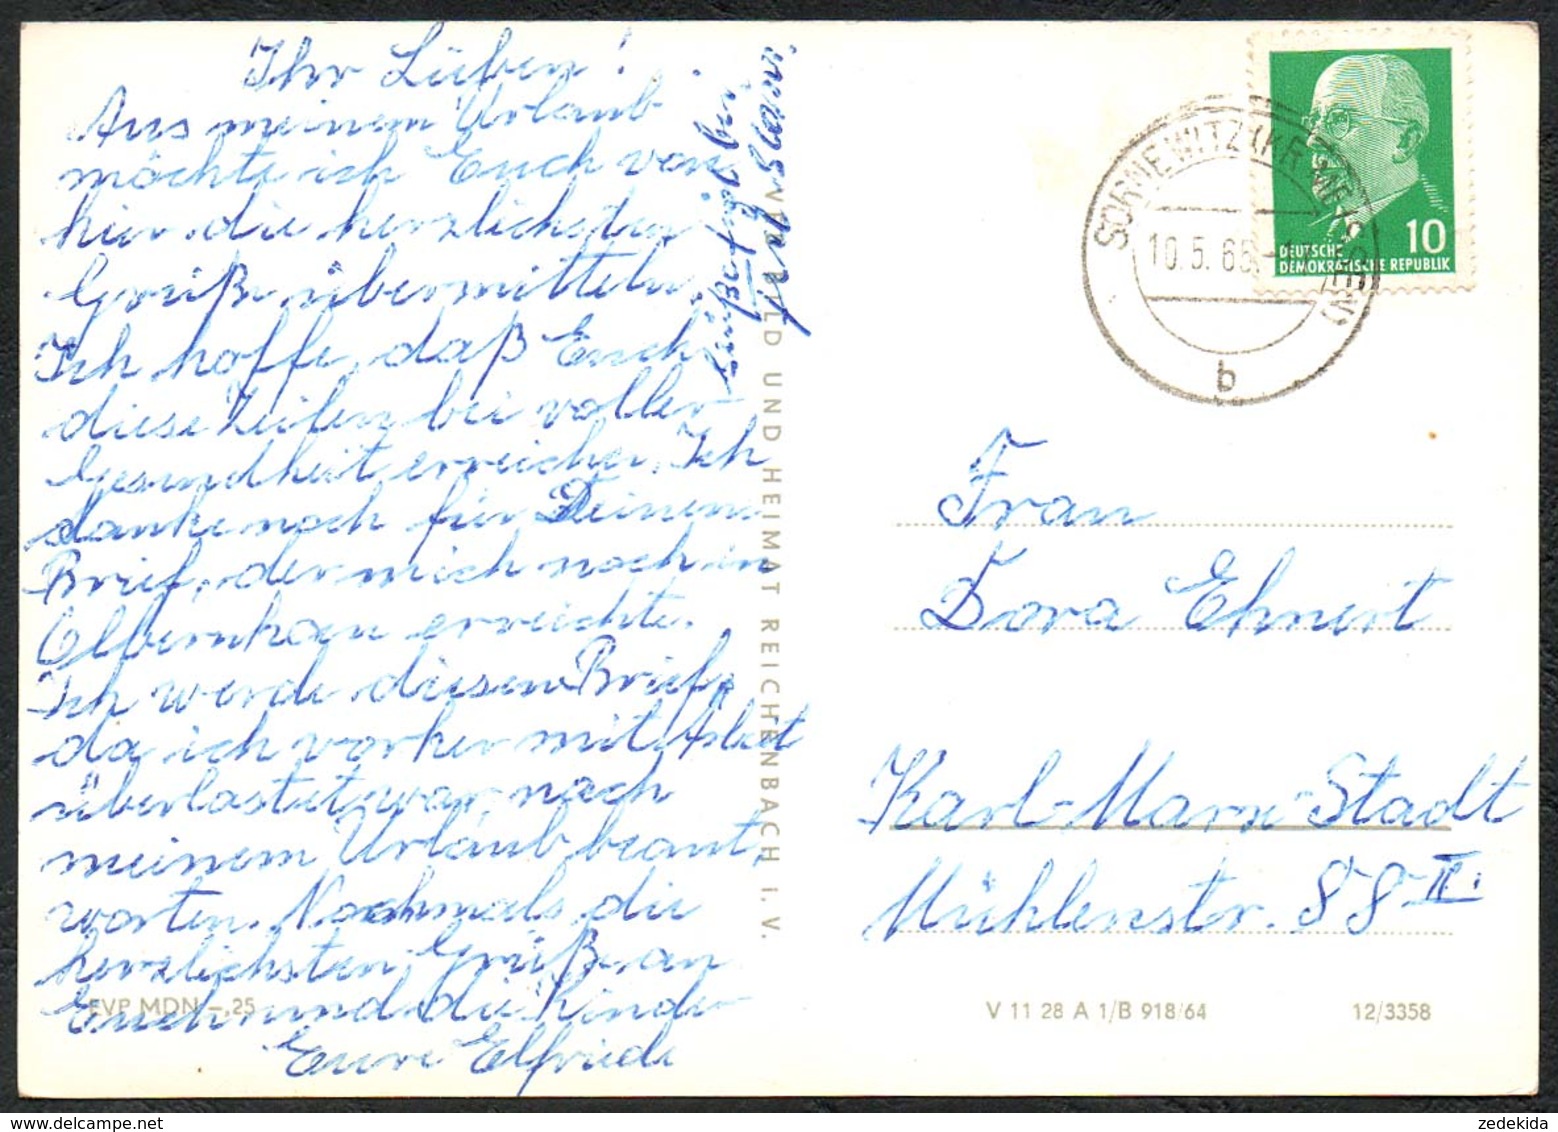 Ihr Lieben!
Aus meinem Urlaub
möchte ich Euch von
hier die herzlichsten
Grüße übermitteln.
Ich hoffe, daß Euch
diese Zeilen bei voller
Gesundheit erreichen. Ich
danke noch für Deinen
Brief, der mich noch in
Olbernhau erreichte.
Ich werde diesen Brief,
da ich vorher mit Arbeit
überlastet war, nach
meinem Urlaub beant,
worten. Nochmals die
herzlichsten Grüße an
Euch und die Kinder
Eure Elfriede
VERLAG BILD UND HEIMAT REICHENBACH I. V.
EVP MDN -,25
DEUTSCHE
DEMOKRATISCHE REPUBLIK
10
SÖRNEWITZ (KR MEISSEN)
10.5.65
b
Frau
Dora Ehnert
Karl-Marx-Stadt
Mühlenstr. 88 II.
V 11 28 A 1/B 918/64
12/3358
zedekida